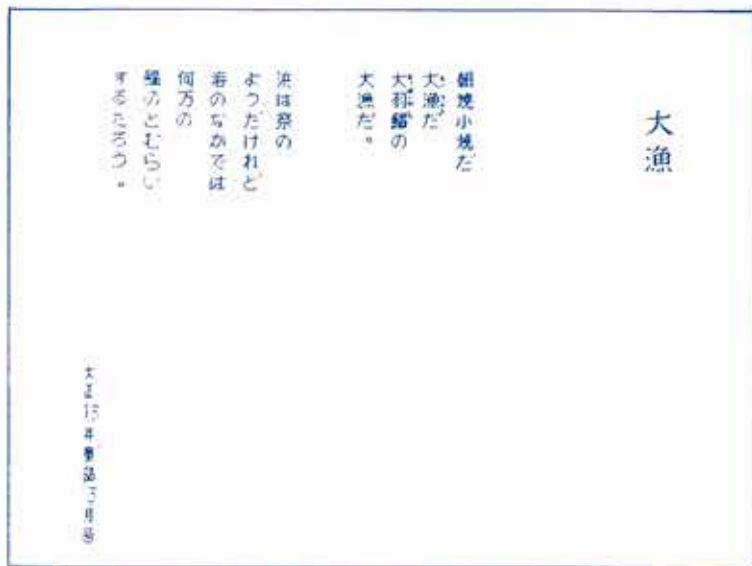 大漁
朝焼小焼だ
大漁だ
大羽鰮の
大漁だ。
浜は祭の
ようだけれど
海のなかでは
何万の
鰮のとむらい
するだろう。
大正13年 月号